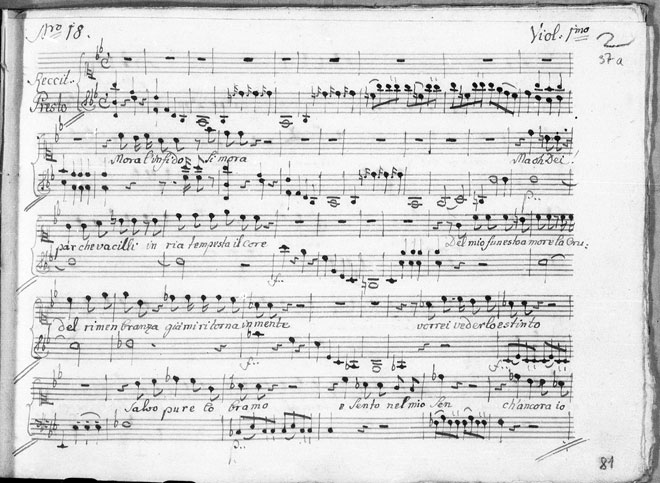 Nro 18.
Viol. 1mo
57a
Reccit.
Presto
Mora l'infido si mora
Ma oh Dei!
par che vacilli in ria tempesta il core
Del mio funesto amore la Cru:
del rimenbranza già mi ritorna in mente
vorrei vederlo estinto
Salvo pure lo bramo
e Sento nel mio Sen
ch'ancora io
81